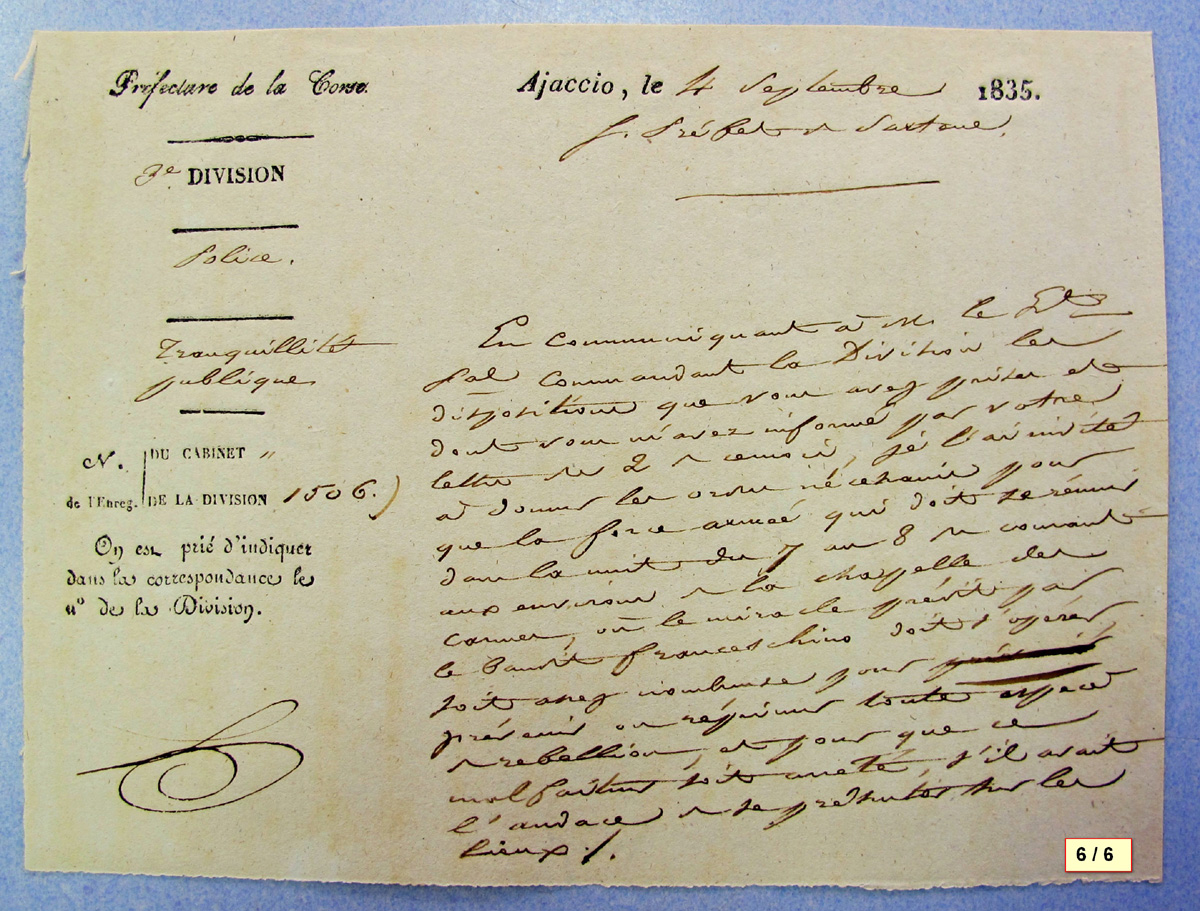 Préfecture de la Corse.
Ajaccio, le 4 Septembre 1835.
S. Préfet de Sartene.
3e DIVISION
Police.
Tranquillité
publique
N.
DU CABINET "
de l'Enreg.
DE LA DIVISION 1506.)
On est prié d'indiquer
dans la correspondance le
n° de la Division.
En communiquant à M. le Lt
Gal Commandant la Division les
dispositions que vous avez prises et
dont vous m'avez informé par votre
lettre du 2 de ce mois, je l'ai invité
à donner les ordres nécessaires pour
que la force armée qui doit se réunir
dans la nuit du 7 au 8 du courant
aux environs de la chapelle des
carmes, où le miracle prédit par
le Bandit franceschino doit s'opérer,
soit assez nombreuse pour
prévenir ou réprimer toute espece
de rebellion, et pour que ce
malfaiteur soit arreté, s'il avait
l'audace de se présenter sur les
lieux ./.
6 / 6